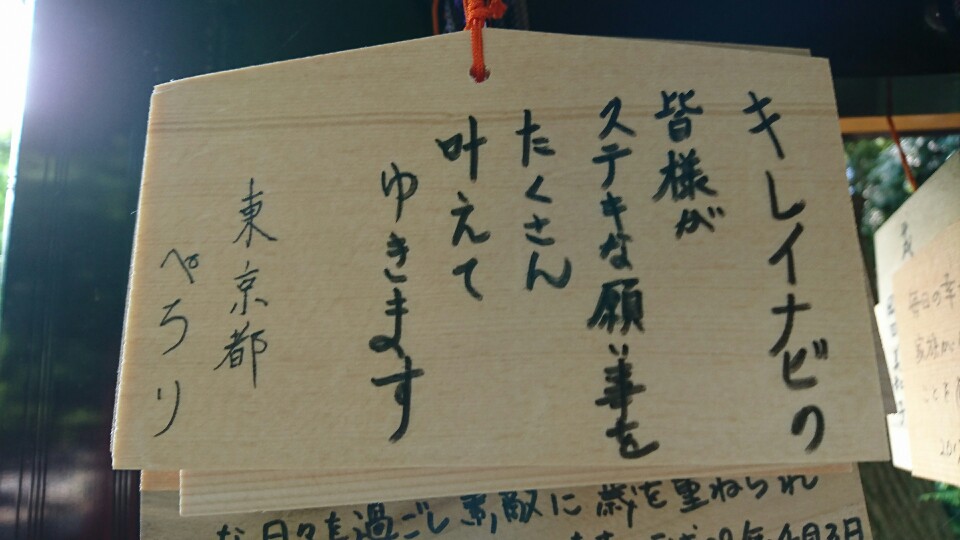 キレイナビの
皆様が
ステキな願い事を
たくさん
叶えて
ゆきます
東京都
ぺちり
な日々を過ごし素敵に歳を重ねられ
毎日の幸
家族が
ことを